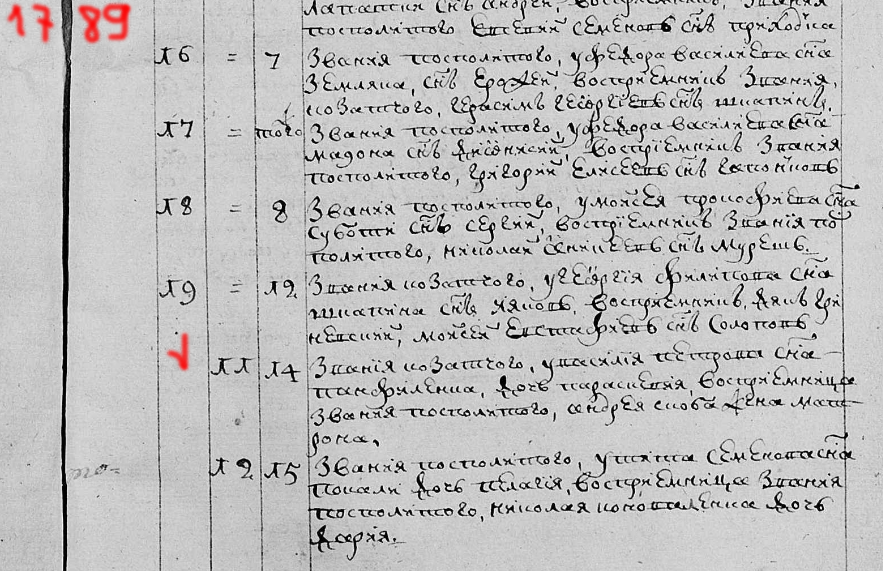 17 89
Лапапки снъ андрей, воспріемникъ, званія
посполитого Евсевій Семеновъ снъ приходка
16 = 7 Званія посполитого, у федора василиева сна
Земляка, снъ Ерофей, воспріемникъ Званія,
козатчого, герасимъ Георгіевъ снъ шпапинъ,
17 = того Званія посполитого, у федора василиева сна
мадона снъ Дионисий, воспріемникъ Званія
посполитого, григорий Елисеевъ снъ
18 = 8 Званія посполитого, у моисея прокофиева сна
Суботы снъ сергий, воспріемникъ Званія по
политого, николай снъ Мурешъ.
19 = 12 Званія козатчого, у Георгія филипова сна
шпапина снъ Іяковъ, воспріемникъ, дякъ гри
невский, моисей Евстафиевъ снъ Солоповъ
1
11 14 Званія козатчого, у василія петрова сна
панфиленка, дочь параскевия, воспріемница
Званія посполитого, андрея скоба жена мат
рона,
12 15 Званія посполитого, у Семенова сна
покали дочь пелагія, воспріемница Званія
посполитого, николая коноваленка дочь
дария.